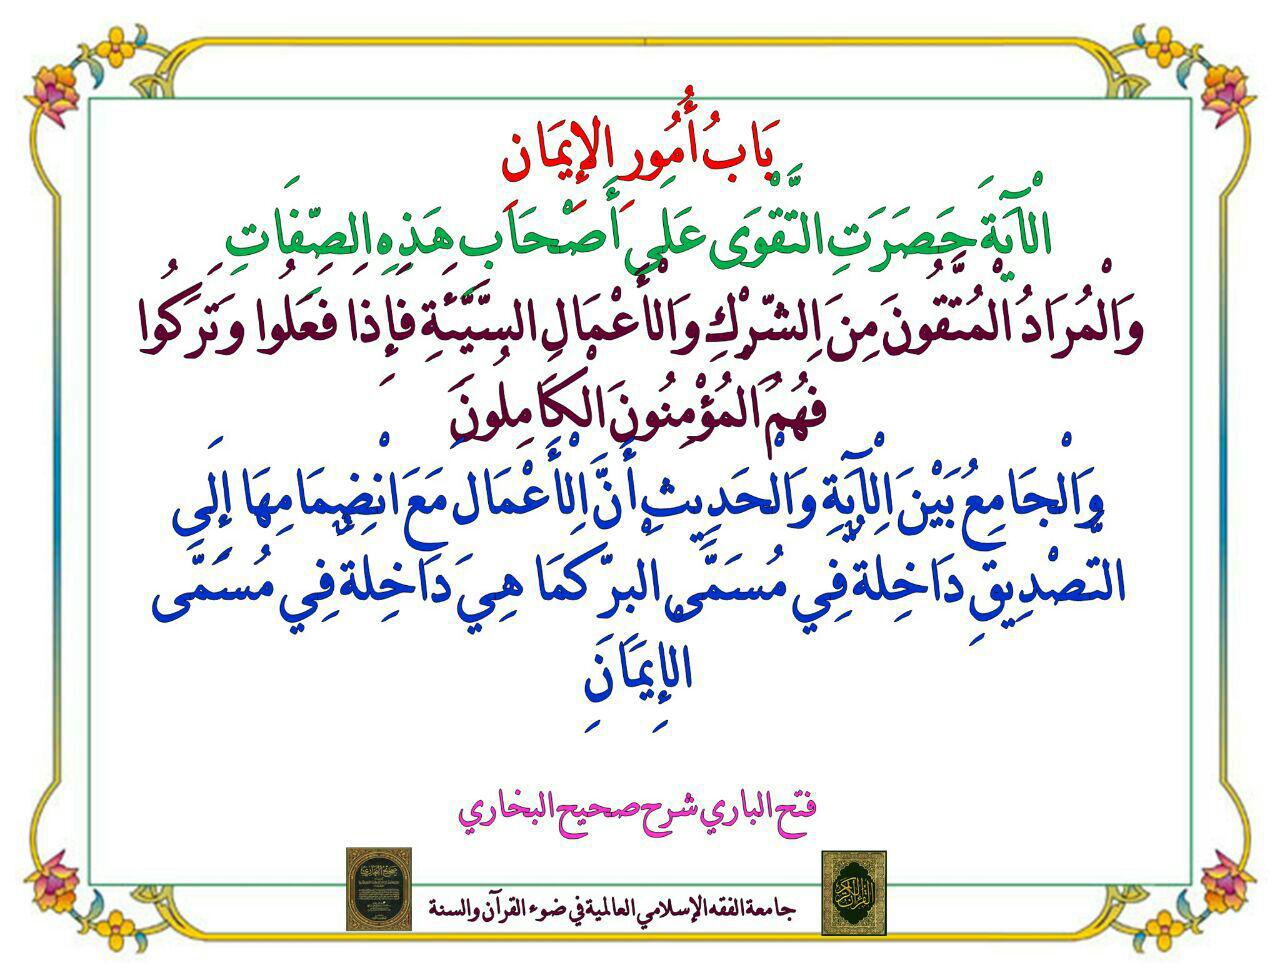 بَابُ أُمُورِ الإِيمَانِ
الْآيَةَ حَصَرَتِ التَّقْوَى عَلَى أَصْحَابِ هَذِهِ الصِّفَاتِ
وَالْمُرَادُ الْمُتَّقُونَ مِنَ الشِّرْكِ وَالْأَعْمَالِ السَّيِّئَةِ فَإِذَا فَعَلُوا وَتَرَكُوا
فَهُمُ الْمُؤْمِنُونَ الْكَامِلُونَ
وَالْجَامِعُ بَيْنَ الْآيَةِ وَالْحَدِيثِ أَنَّ الْأَعْمَالَ مَعَ انْضِمَامِهَا إِلَى
التَّصْدِيقِ دَاخِلَةٌ فِي مُسَمَّى الْبِرِّ كَمَا هِيَ دَاخِلَةٌ فِي مُسَمَّى
الإِيمَانِ
فتح الباري شرح صحيح البخاري
جامعة الفقه الإسلامي العالمية في ضوء القرآن والسنة
القرآن الكريم